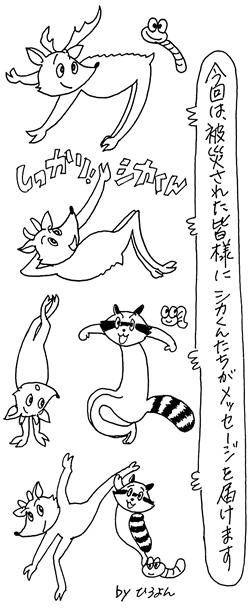 今回は、被災された皆様に シカくんたちがメッセージを届けます
しっかり!! シカくん
by ひろよん